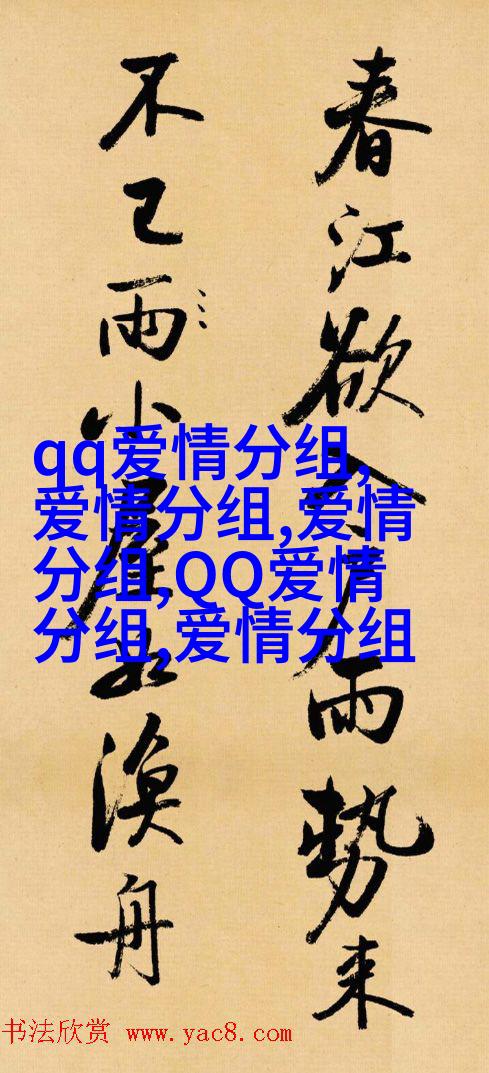 春江欲入雨勢来
不已雨小屋如漁舟
qq爱情分组,
爱情分组,爱情
分组,QQ爱情
分组,爱情分组
书法欣赏 www.yac8.com